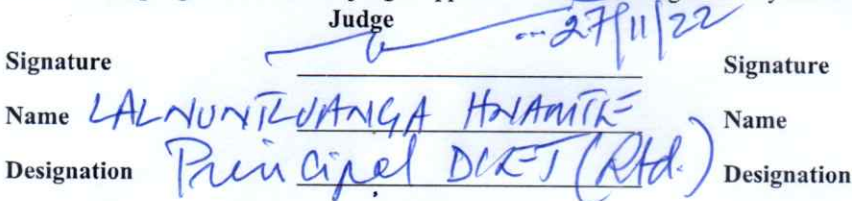 Judge
27/11/22
Signature Signature
Name LALNUNTLUANGA HNAMTE Name
Designation Principal DIET (Rtd.) Designation